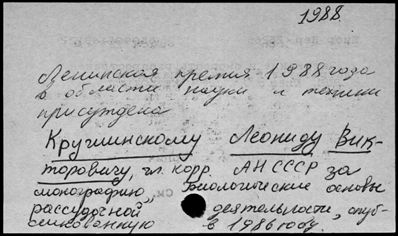 1988.
Ленинская премия 1988 года
в области науки и техники
присуждена
Крушинскому Леониду Вик-
торовичу, чл. корр. АН СССР за
монографию „Биологические основы
рассудочной деятельности, опуб-
ликованную в 1986 году.